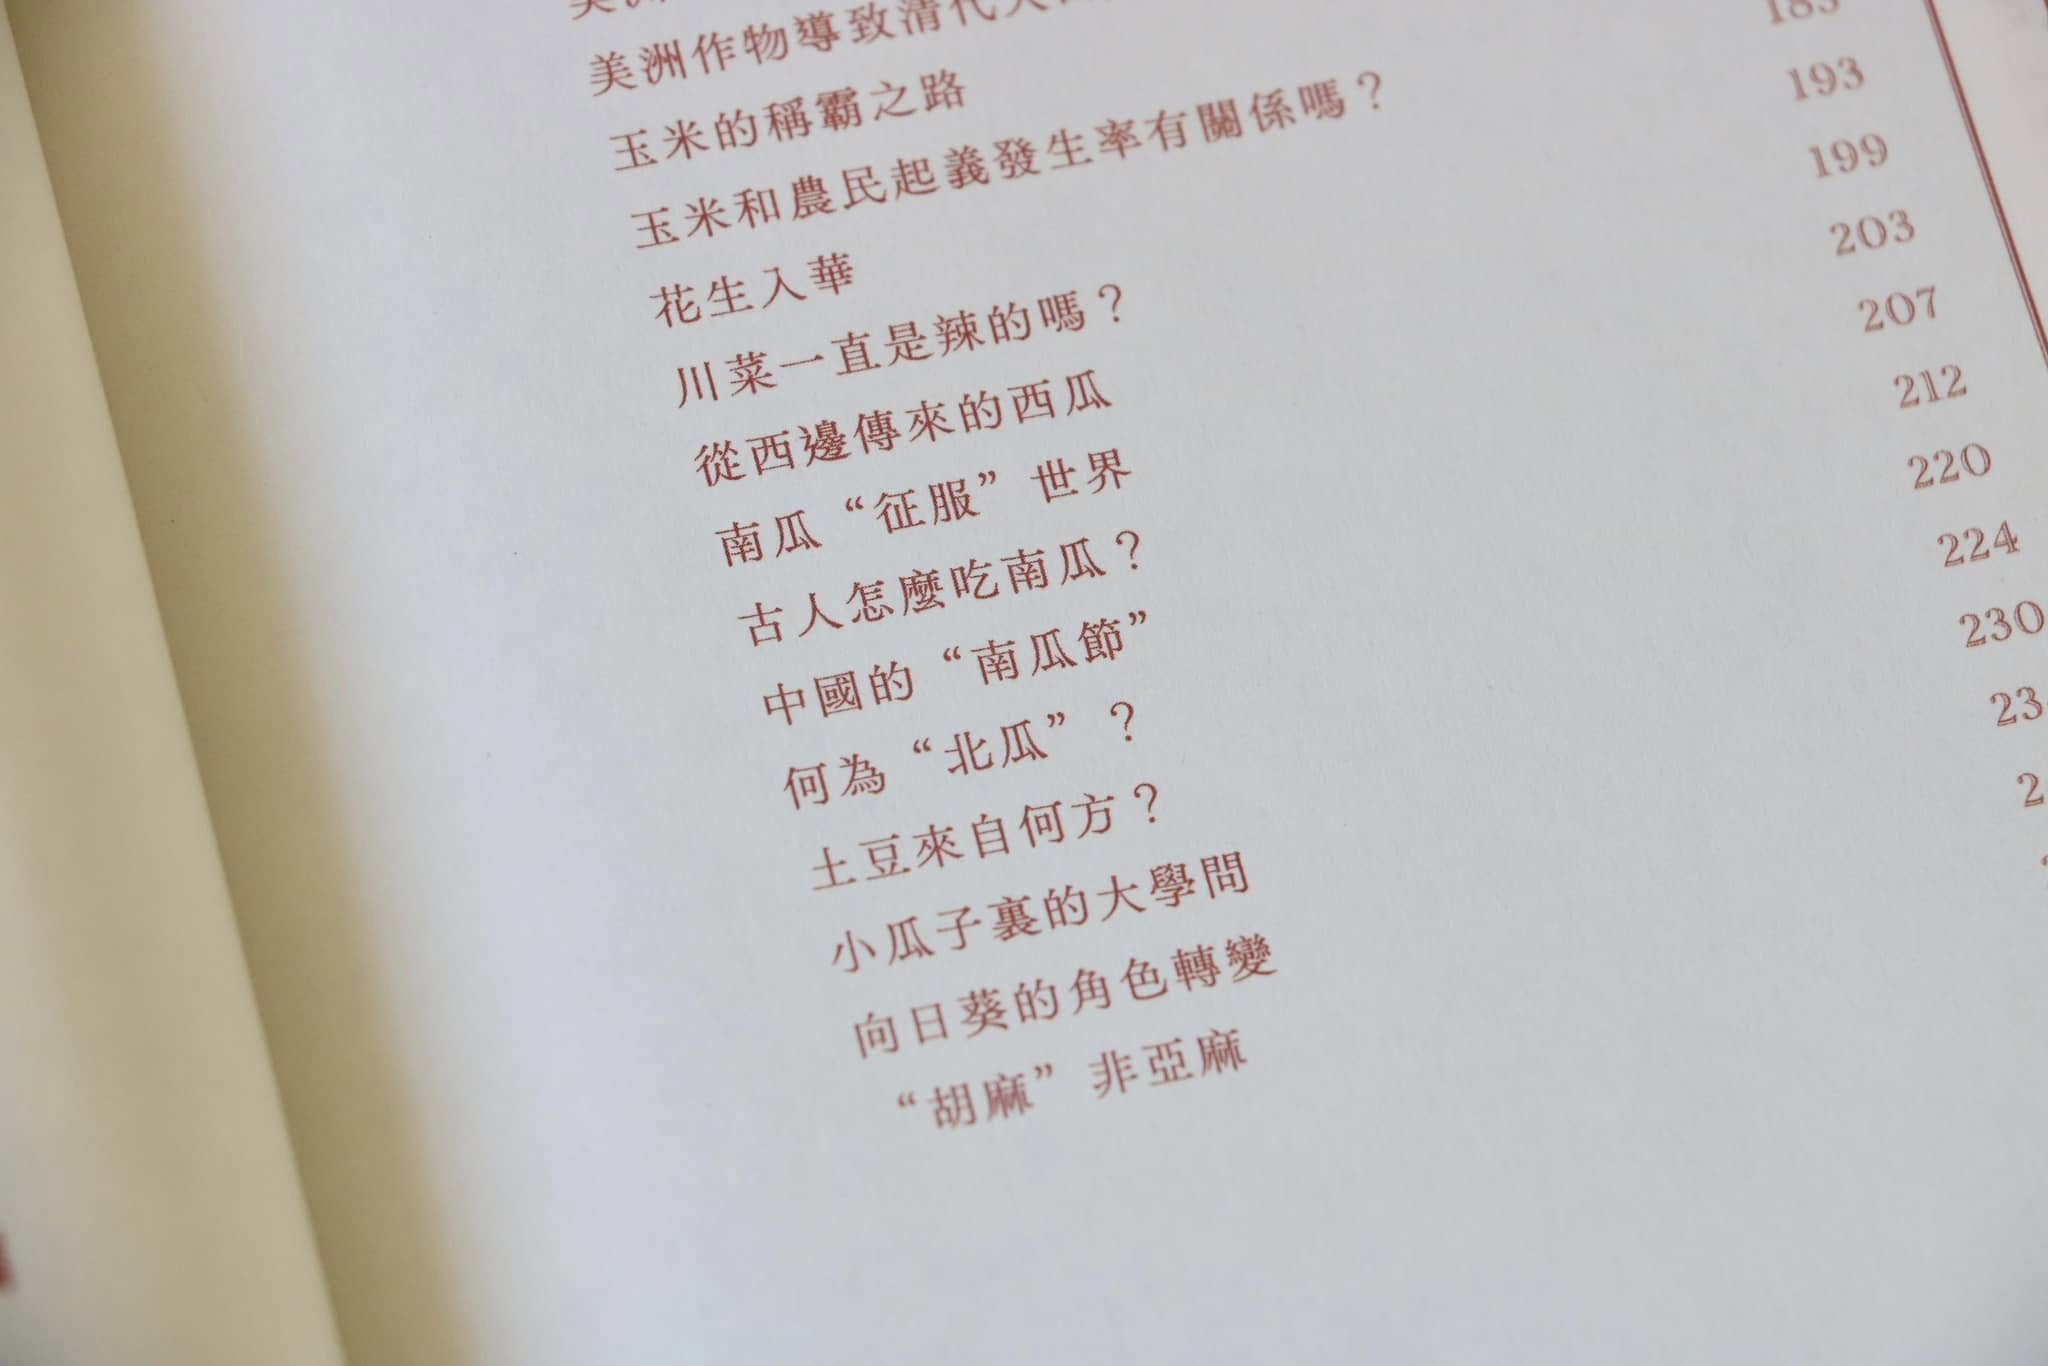 美洲作物導致清代
玉米的稱霸之路
玉米和農民起義發生率有關係嗎？
花生入華 193
川菜一直是辣的嗎？ 199
從西邊傳來的西瓜 203
南瓜“征服”世界 207
古人怎麼吃南瓜？ 212
中國的“南瓜節” 220
何為“北瓜”？ 224
土豆來自何方？ 230
小瓜子裏的大學問
向日葵的角色轉變
“胡麻”非亞麻